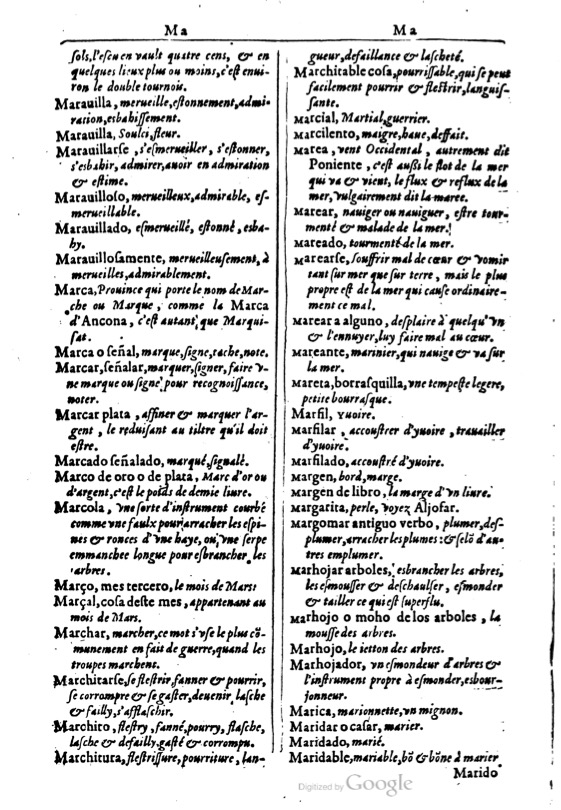 Ma
ſols, l'eſcu en vault quatre cens, & en
quelques lieux plus ou moins, c'eſt enui-
ron le double tournois.
Marauilla, merueille, eſtonnement, admi-
ration, esbahiſſement.
Marauilla, Soulci, fleur.
Marauillarſe, s'eſmerueiller, s'eſtonner,
s'esbahir, admirer, auoir en admiration
& eſtime.
Marauilloſo, merueilleux, admirable, eſ-
merueillable.
Marauillado, eſmerueillé, eſtonné, esba-
hy.
Marauilloſamente, merueilleuſement, à
merueilles, admirablement.
Marca, Prouince qui porte le nom de Mar-
che ou Marque, comme la Marca
d'Ancona, c'eſt autant que Marqui-
ſat.
Marca o ſeñal, marque, ſigne, tache, note.
Marcar, ſeñalar, marquer, ſigner, faire v-
ne marque ou ſigne pour recognoiſſance,
noter.
Marcar plata, affiner & marquer l'ar-
gent, le reduiſant au tiltre qu'il doit
eſtre.
Marcado ſeñalado, marqué, ſignalé.
Marco de oro o de plata, Marc d'or ou
d'argent, c'eſt le poids de demie liure.
Marcola, vne ſorte d'inſtrument courbé
comme vne faulx pour arracher les eſpi-
nes & ronces d'vne haye, ou, vne ſerpe
emmanchee longue pour esbrancher les
arbres.
Março, mes tercero, le mois de Mars.
Marçal, coſa deſte mes, appartenant au
mois de Mars.
Marchar, marcher, ce mot s'vſe le plus cō-
munement en fait de guerre, quand les
troupes marchent.
Marchitarſe, ſe fleſtrir, fanner & pourrir,
ſe corrompre & ſe gaſter, deuenir laſche
& failly, s'aflaſchir.
Marchito, fleſtry, fanné, pourry, flaſche,
laſche & defailly, gaſté & corrompu.
Marchitura, fleſtriſſure, pourriture, lan-
Ma
gueur, defaillance & laſcheté.
Marchitable coſa, pourriſſable, qui ſe peut
facilement pourrir & fleſtrir, languiſ-
ſante.
Marcial, Martial, guerrier.
Marcilento, maigre, haue, deffait.
Marea, vent Occidental, autrement dit
Poniente, c'eſt auſsi le flot de la mer
qui va & vient, le flux & reflux de la
mer, vulgairement dit la maree.
Marear, nauiger ou nauiguer, eſtre tour-
menté & malade de la mer.
Mareado, tourmenté de la mer.
Marearſe, ſouffrir mal de cœur & vomir
tant ſur mer que ſur terre, mais le plus
propre eſt de la mer qui cauſe ordinaire-
ment ce mal.
Marear a alguno, deſplaire à quelqu'vn
& l'ennuyer, luy faire mal au cœur.
Mareante, marinier, qui nauige & va ſur
la mer.
Mareta, borraſquilla, vne tempeſte legere,
petite bourraſque.
Marfil, yuoire.
Marfilar, accouſtrer d'yuoire, trauailler
d'yuoire.
Marfilado, accouſtré d'yuoire.
Margen, bord, marge.
Margen de libro, la marge d'vn liure.
Margarita, perle, voyez Aljofar.
Margomar antiguo verbo, plumer, deſ-
plumer, arracher les plumes: & ſelō d'au-
tres emplumer.
Marhojar arboles, esbrancher les arbres,
les eſmouſſer & deſchauſſer, eſmonder
& tailler ce qui eſt ſuperflu.
Marhojo o moho de los arboles, la
mouſſe des arbres.
Marhojo, le ietton des arbres.
Marhojador, vn eſmondeur d'arbres &
l'inſtrument propre à eſmonder, esbour-
jonneur.
Marica, marionnette, vn mignon.
Maridar o caſar, marier.
Maridado, marié.
Maridable, mariable, bō & bōne à marier
Marido
Digitized by Google